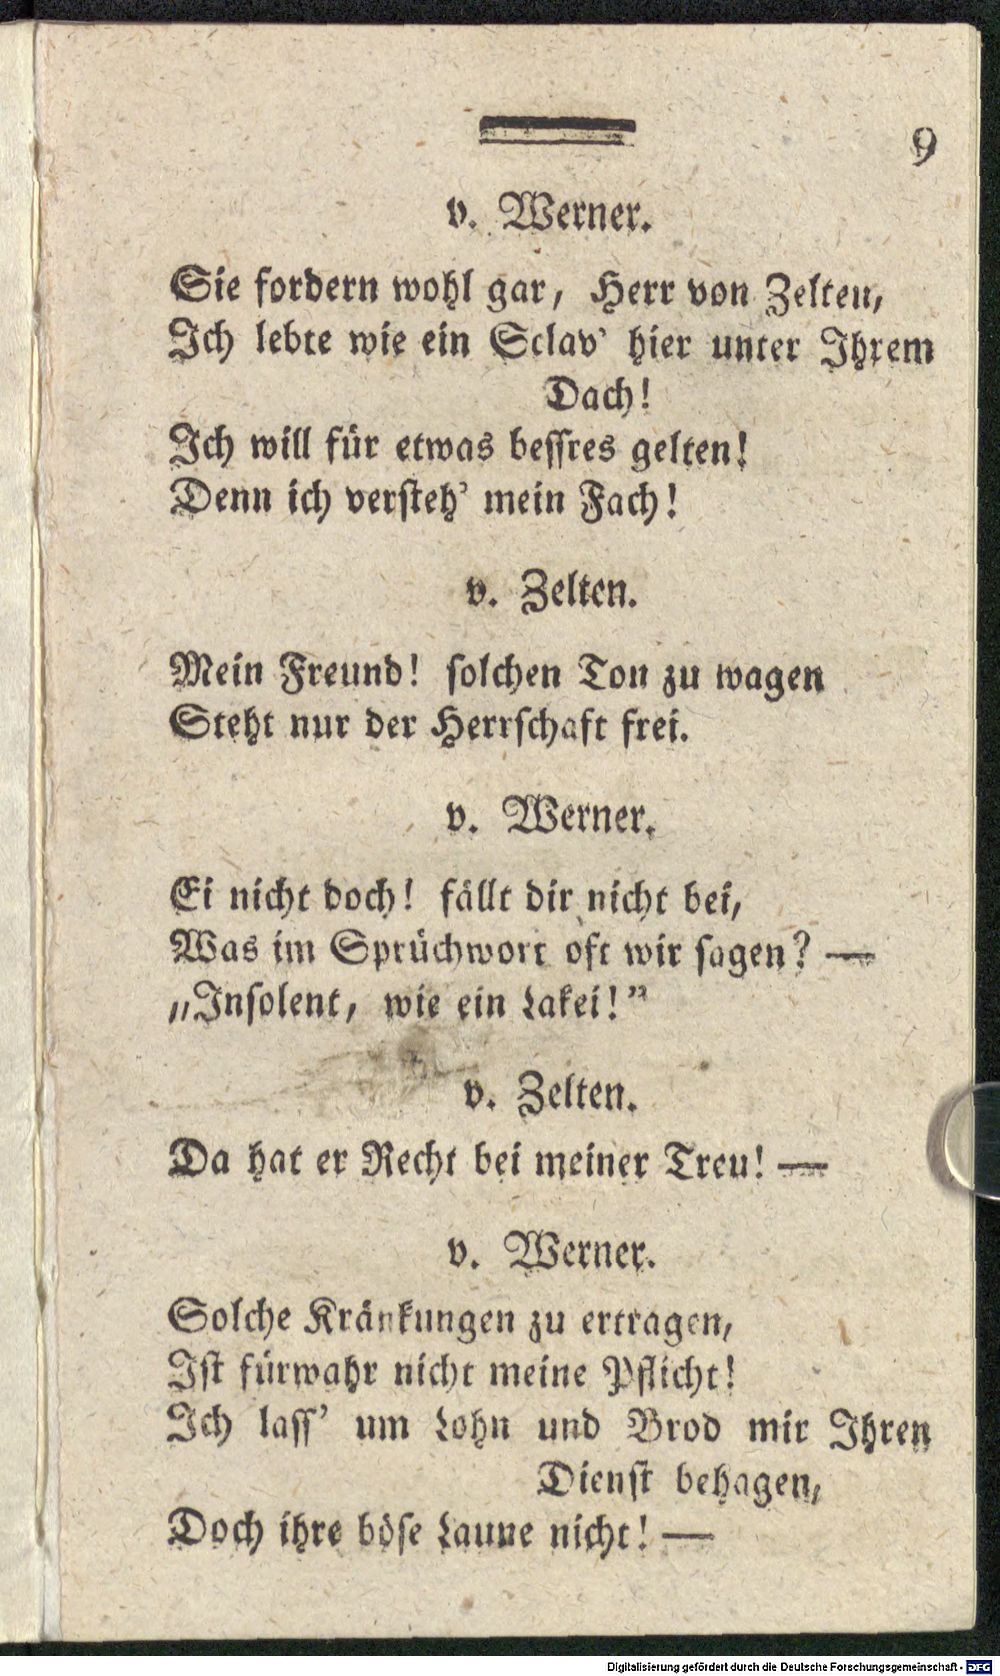 9
v. Werner.
Sie fordern wohl gar, Herr von Zelten,
Ich lebte wie ein Sclav' hier unter Ihrem
Dach!
Ich will für etwas bessres gelten!
Denn ich versteh' mein Fach!
v. Zelten.
Mein Freund! solchen Ton zu wagen
Steht nur der Herrschaft frei.
v. Werner.
Ei nicht doch! fällt dir nicht bei,
Was im Sprüchwort oft wir sagen? —
„Insolent, wie ein Lakei!”
v. Zelten.
Da hat er Recht bei meiner Treu! —
v. Werner.
Solche Kränkungen zu ertragen,
Ist fürwahr nicht meine Pflicht!
Ich lass' um Lohn und Brod mir Ihren
Dienst behagen,
Doch ihre böse Laune nicht! —
Digitalisierung gefördert durch die Deutsche Forschungsgemeinschaft - DFG